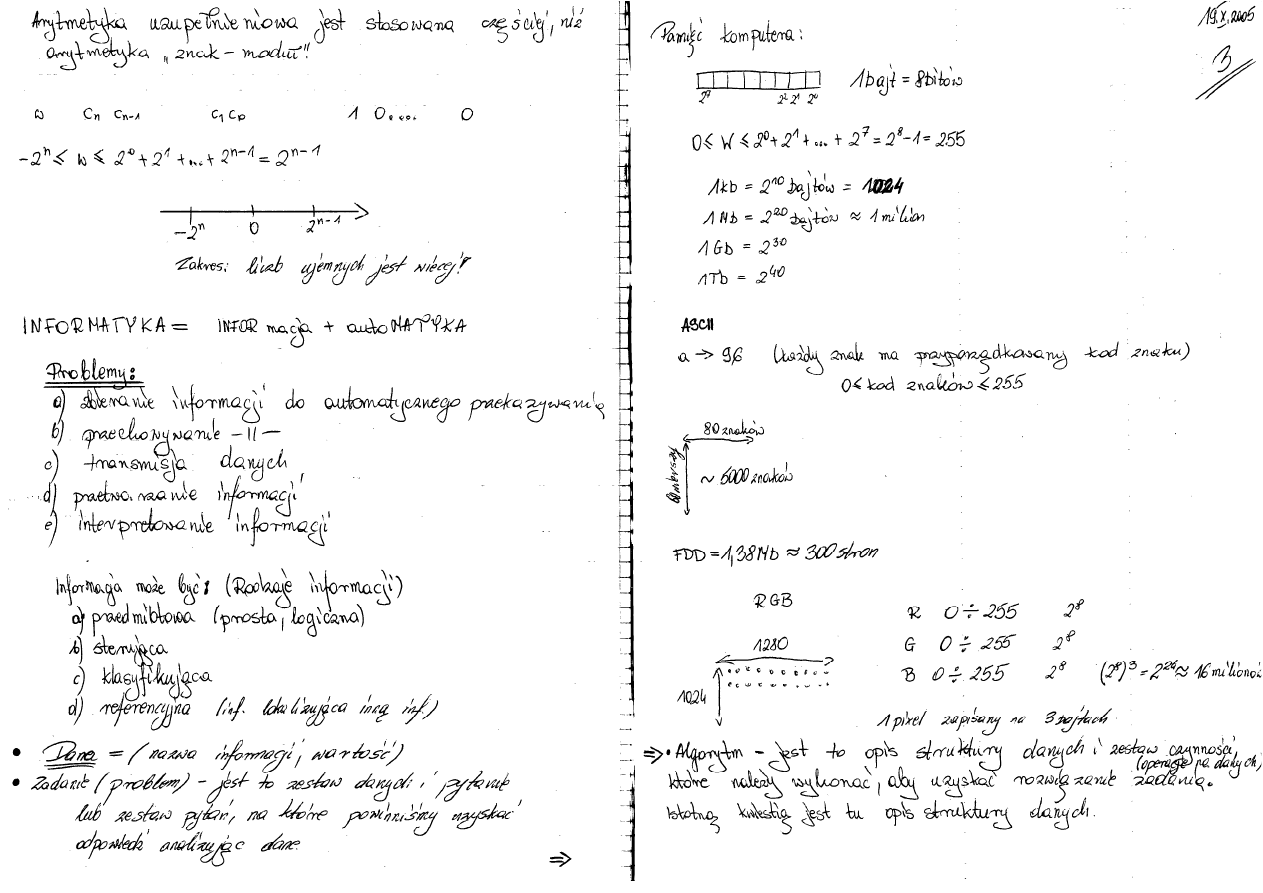 Arytmetyka uzupełnieniowa jest stosowana częściej, niż
arytmetyka „znak – moduł"!
w cn cn-1 c1 c0 1 0..... 0
-2ⁿ ≤ w ≤ 2⁰ + 2¹ + ... + 2ⁿ⁻¹ = 2ⁿ⁻¹
-2ⁿ 0 2ⁿ⁻¹
Zakres: liczb ujemnych jest więcej!
INFORMATYKA = INFORmacja + autoMATYKA
Problemy:
a) zbieranie informacji do automatycznego przekazywania
b) przechowywanie –II–
c) transmisja danych
d) przetwarzanie informacji
e) interpretowanie informacji
Informacja może być: (Rodzaje informacji)
a) przedmiotowa (prosta, logiczna)
b) sterująca
c) klasyfikująca
d) referencyjna (inf. lokalizująca inną inf.)
• Dana = (nazwa informacji, wartość)
• Zadanie (problem) – jest to zestaw danych i pytanie
lub zestaw pytań, na które powinniśmy uzyskać
odpowiedź analizując dane.
⇒
19.X.2005
3
Pamięć komputera:
1 bajt = 8 bitów
2⁷ 2² 2¹ 2⁰
0 ≤ W ≤ 2⁰ + 2¹ + ... + 2⁷ = 2⁸ - 1 = 255
1kb = 2¹⁰ bajtów = 1024
1Mb = 2²⁰ bajtów ≈ 1 milion
1Gb = 2³⁰
1Tb = 2⁴⁰
ASCII
a → 96 (każdy znak ma przyporządkowany kod znaku)
0 ≤ kod znaków ≤ 255
80 znaków
~ 5000 znaków
FDD = 1,38Mb ≈ 300 stron
RGB
R 0 ÷ 255 2⁸
G 0 ÷ 255 2⁸
B 0 ÷ 255 2⁸ (2⁸)³ = 2²⁴ ≈ 16 milionów
1280
1024
1 pixel zapisany na 3 bajtach
⇒ • Algorytm – jest to opis struktury danych i zestaw czynności
(operacje na danych)
które należy wykonać, aby uzyskać rozwiązanie zadania.
Istotną kwestią jest tu opis struktury danych.